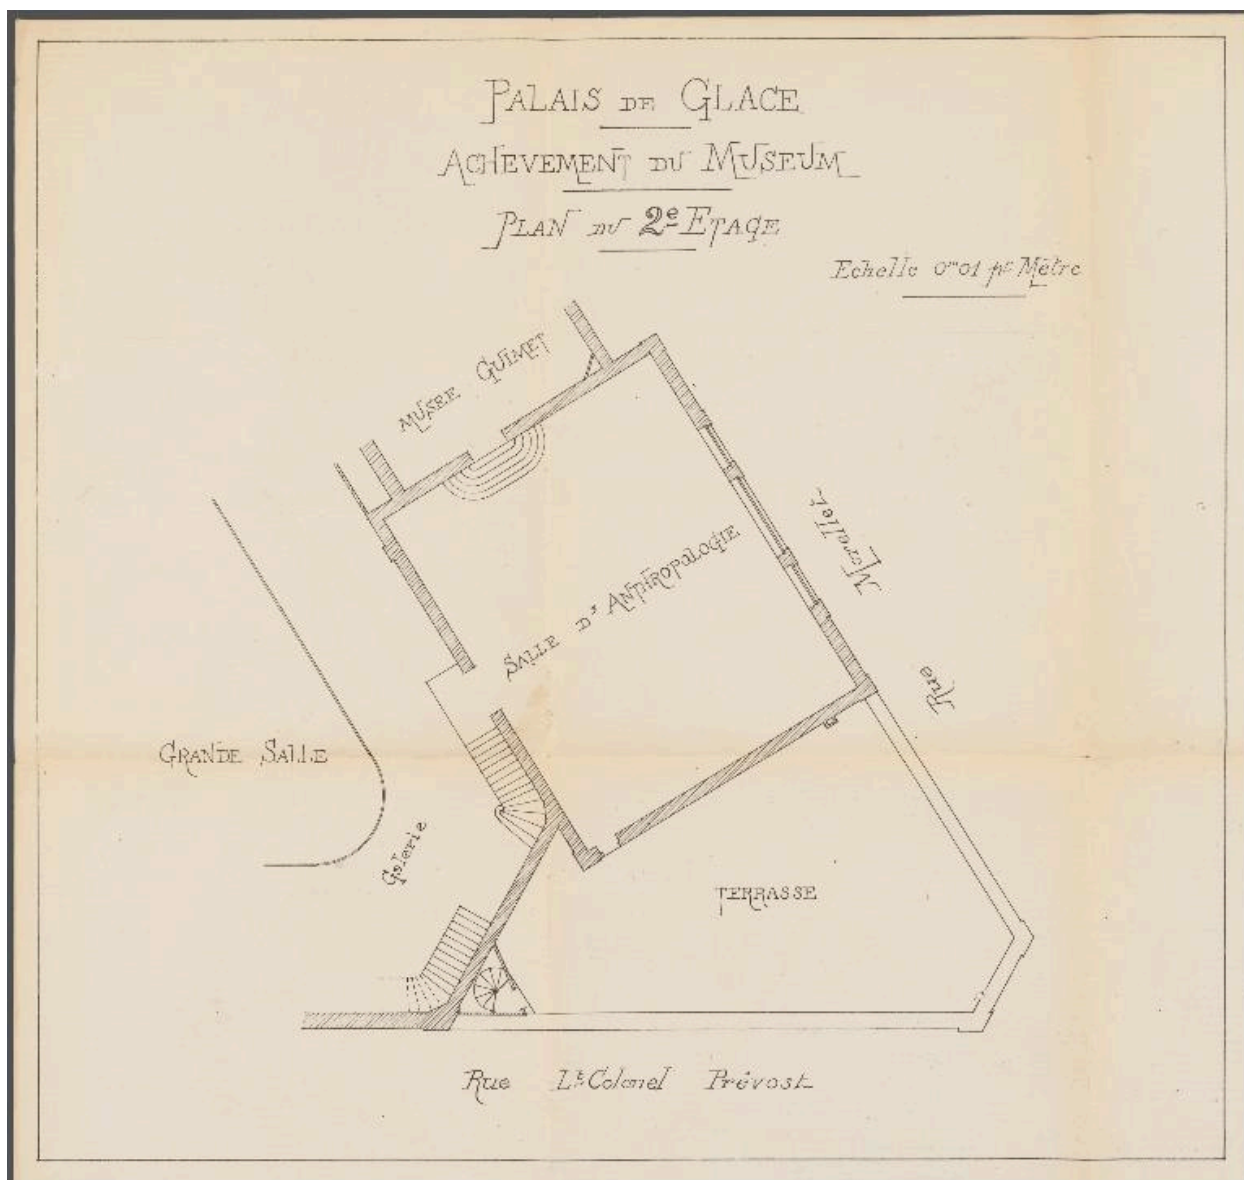 PALAIS DE GLACE
ACHEVEMENT DU MUSEUM
PLAN DU 2e ETAGE
Echelle 0m01 pr Mètre
MUSEE GUIMET
SALLE D'ANTHROPOLOGIE
Rue Morellet
GRANDE SALLE
Galerie
TERRASSE
Rue Lt Colonel Prévost